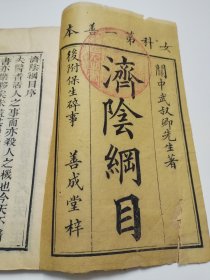 女科第一善本
關中武叔卿先生著
濟陰綱目
後附保生碎事 善成堂梓
濟陰綱目序
夫醫者活人之事而亦殺人之機也今天下